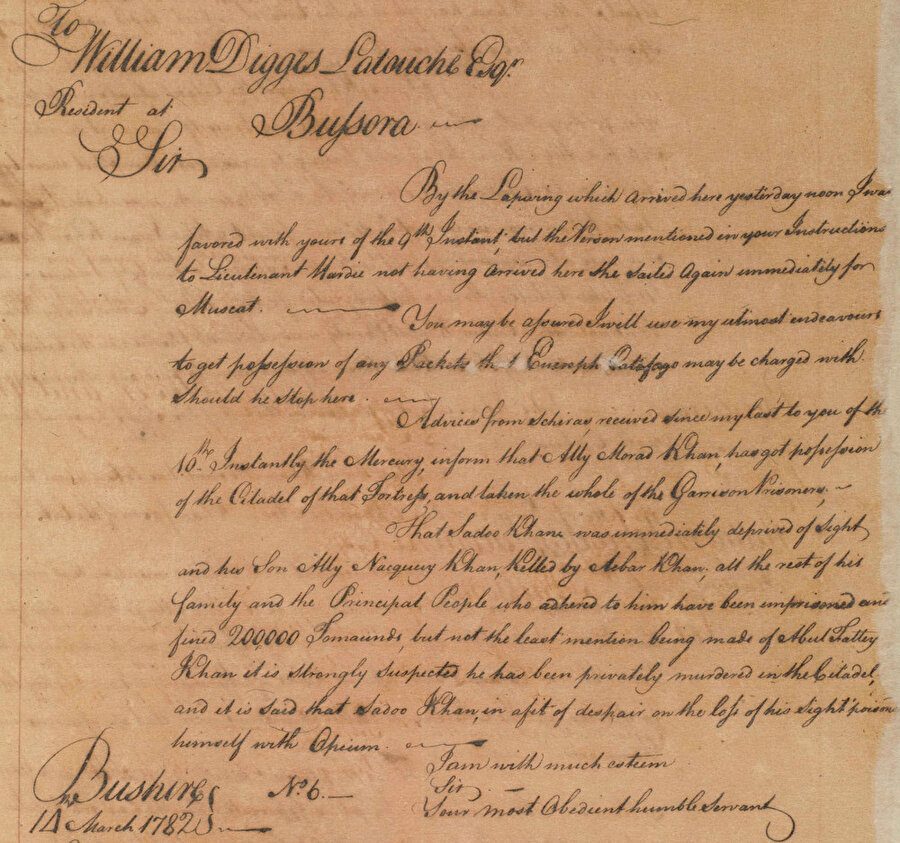 To
William Digges Latouche Esqr.
Resident at Bussora
Sir
By the Lapwing which arrived here yesterday noon I was
favored with yours of the 9th Instant, but the Person mentioned in your Instructions
to Lieutenant Hardie not having arrived here she sailed again immediately for
Muscat.
You may be assured I will use my utmost endeavours
to get possession of any Packets that Catafago may be charged with
should he stop here.
Advices from Schiras received since my last to you of the
10th Instantly the Mercury, inform that Ally Morad Khan, has got possession
of the Citadel of that Fortress, and taken the whole of the Garrison Prisoners,
That Sadoo Khan was immediately deprived of sight
and his Son Ally Khan, killed by Acbar Khan, all the rest of his
family and the Principal People who adhered to him have been imprisoned and
fined 200,000 Tomaunds, but not the least mention being made of Abul Fattey
Khan it is strongly suspected he has been privately murdered in the Citadel,
and it is said that Sadoo Khan, in a fit of despair on the loss of his sight poison
himself with Opium.
I am with much esteem
Sir
Your most Obedient humble Servant
Bushire No. 6.
the 14 March 1782